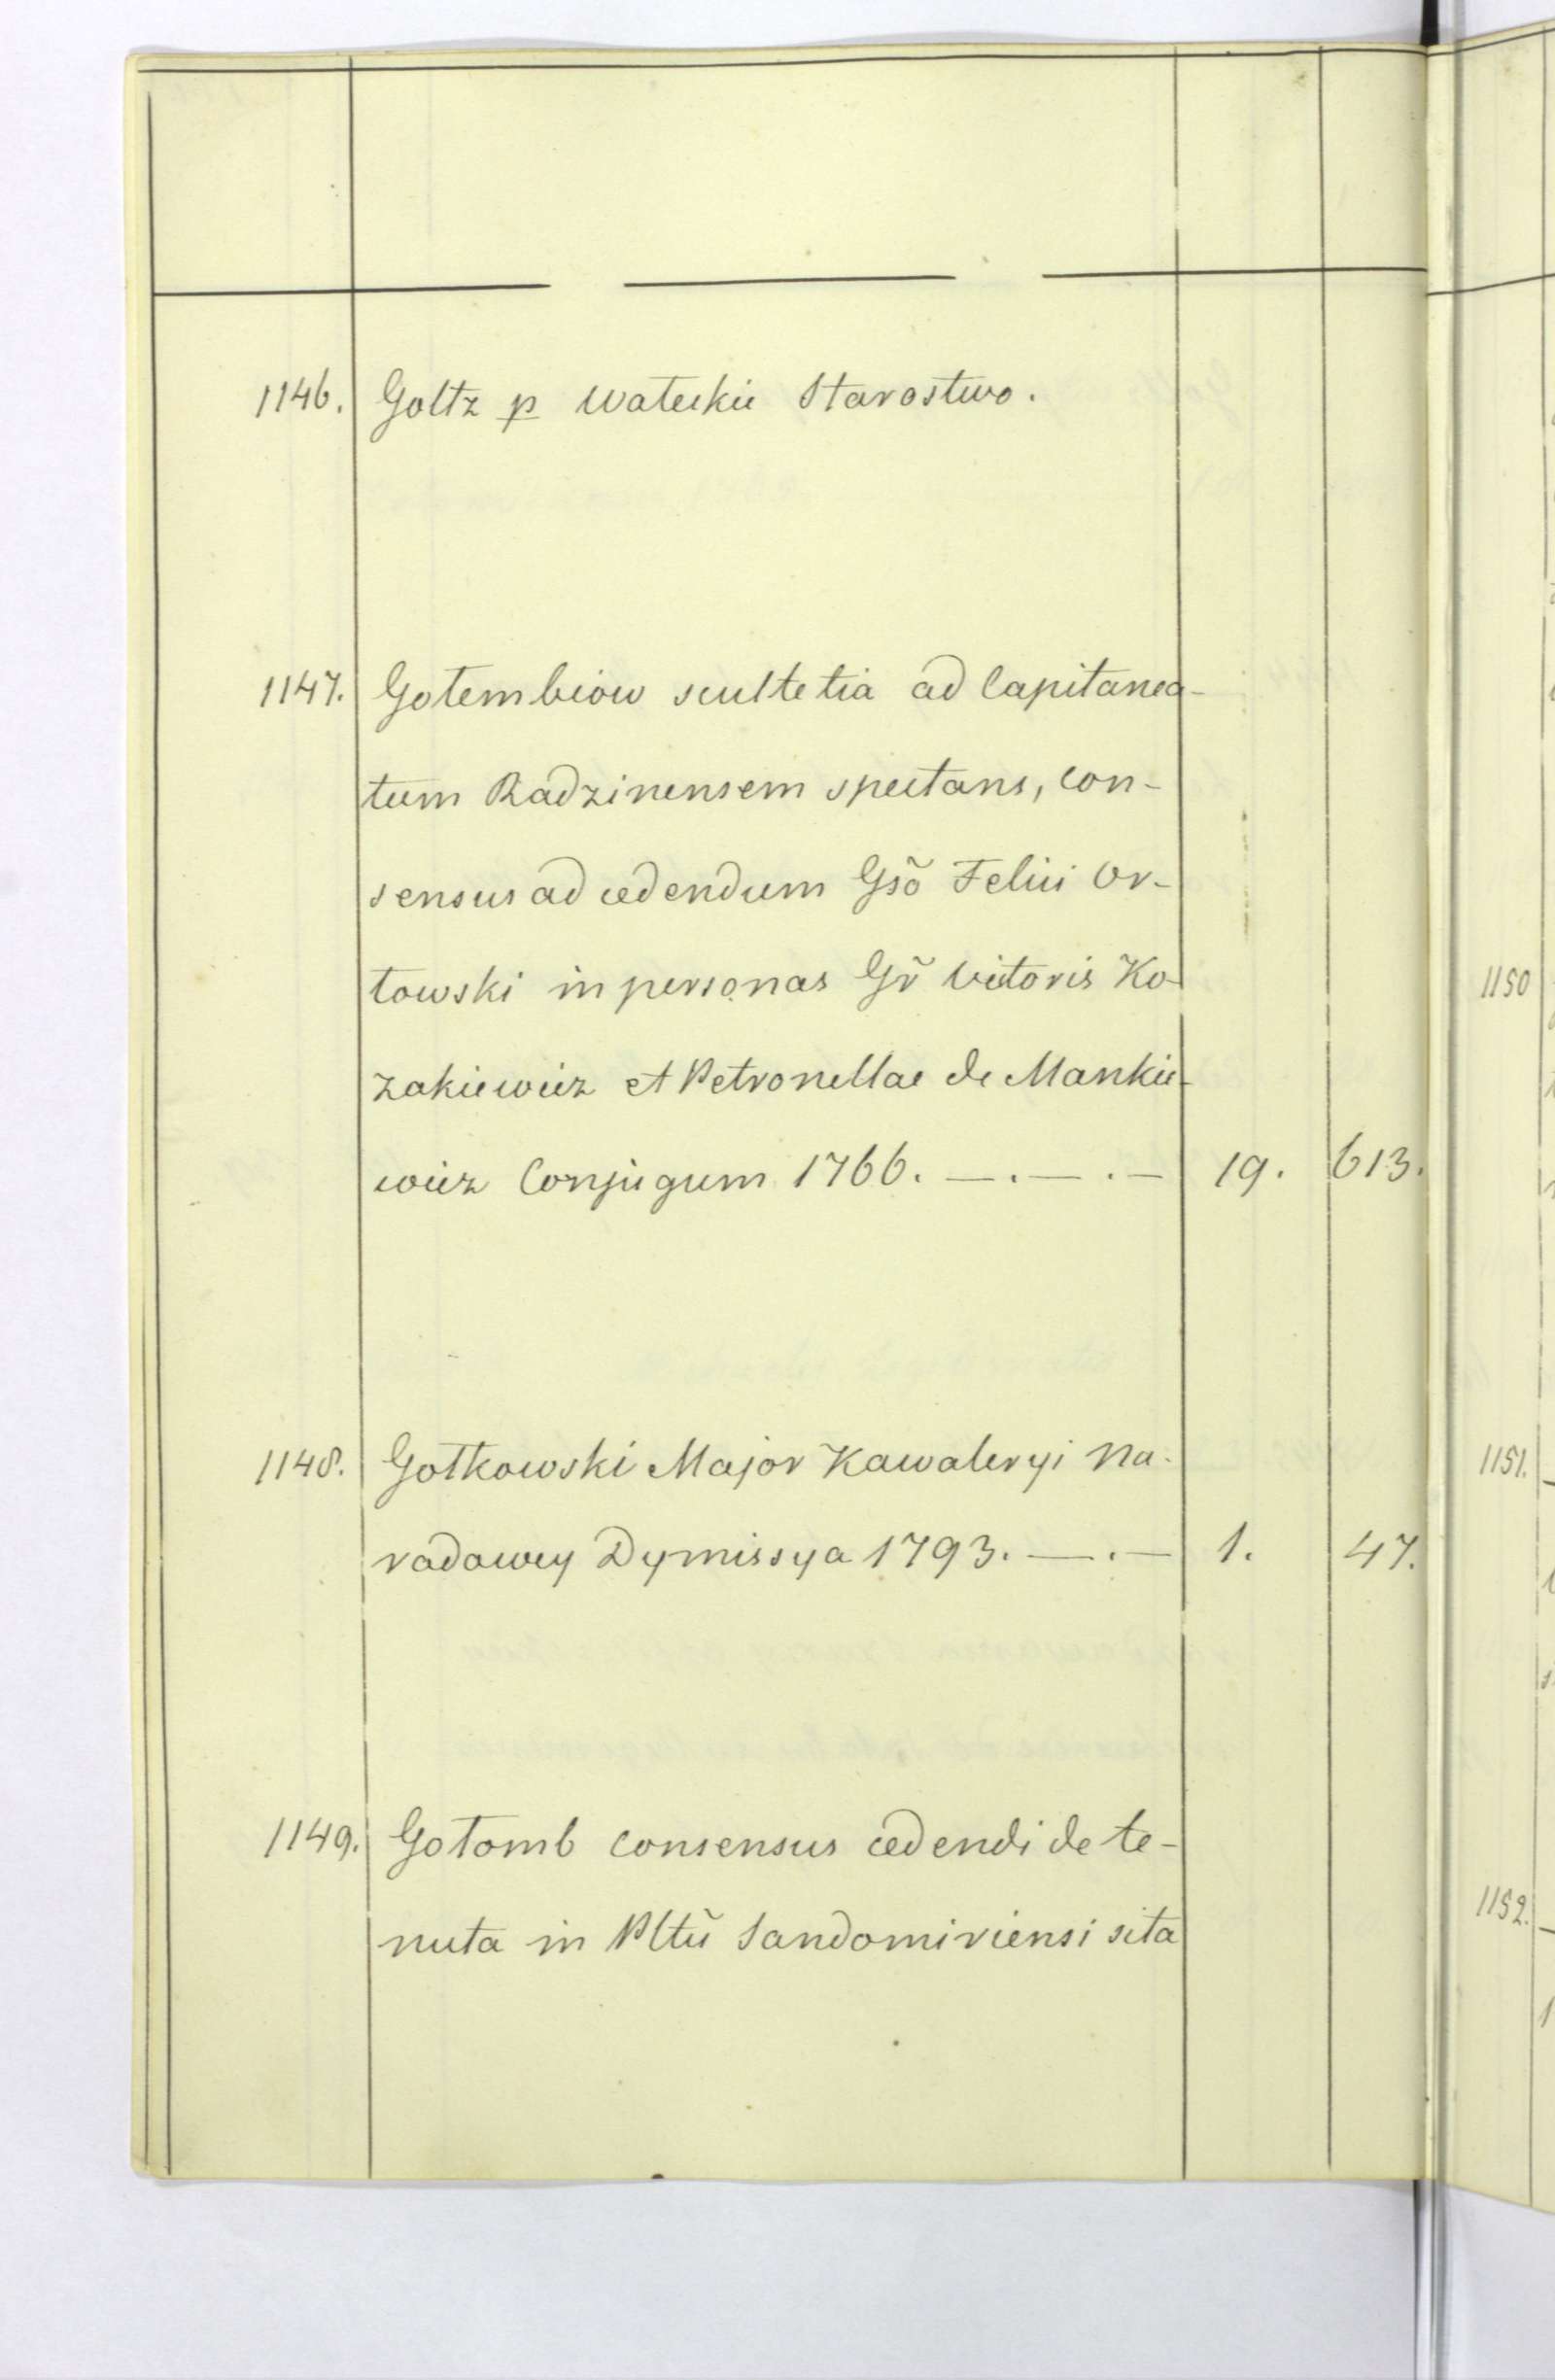 1146. Goltz p Wałeckie Starostwo.
1147. Gołembiow scultetia ad Capitanea-
tum Radzinensem spectans, con-
sensus ad cedendum Gsõ Felici Or-
łowski in personas Gr̃ Victoris Ko-
zakiewicz et Petronellae de Mankie-
wicz Conjugum 1766. —.—.— 19. 613.
1148. Gołkowski Major Kawaleryi Na-
rodowey Dymissya 1793. —.— 1. 47.
1149. Gołomb consensus cedendi de te-
nuta in Pltũ Sandomiriensi sita
1150
1151.
1152.